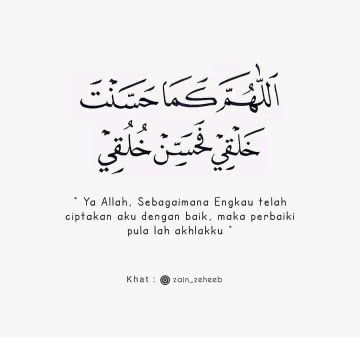 اَللّٰهُمَّ كَمَا حَسَّنْتَ
خَلْقِيْ فَحَسِّنْ خُلُقِيْ
" Ya Allah, Sebagaimana Engkau telah
ciptakan aku dengan baik, maka perbaiki
pula lah akhlakku "
Khat : zain_zeheeb